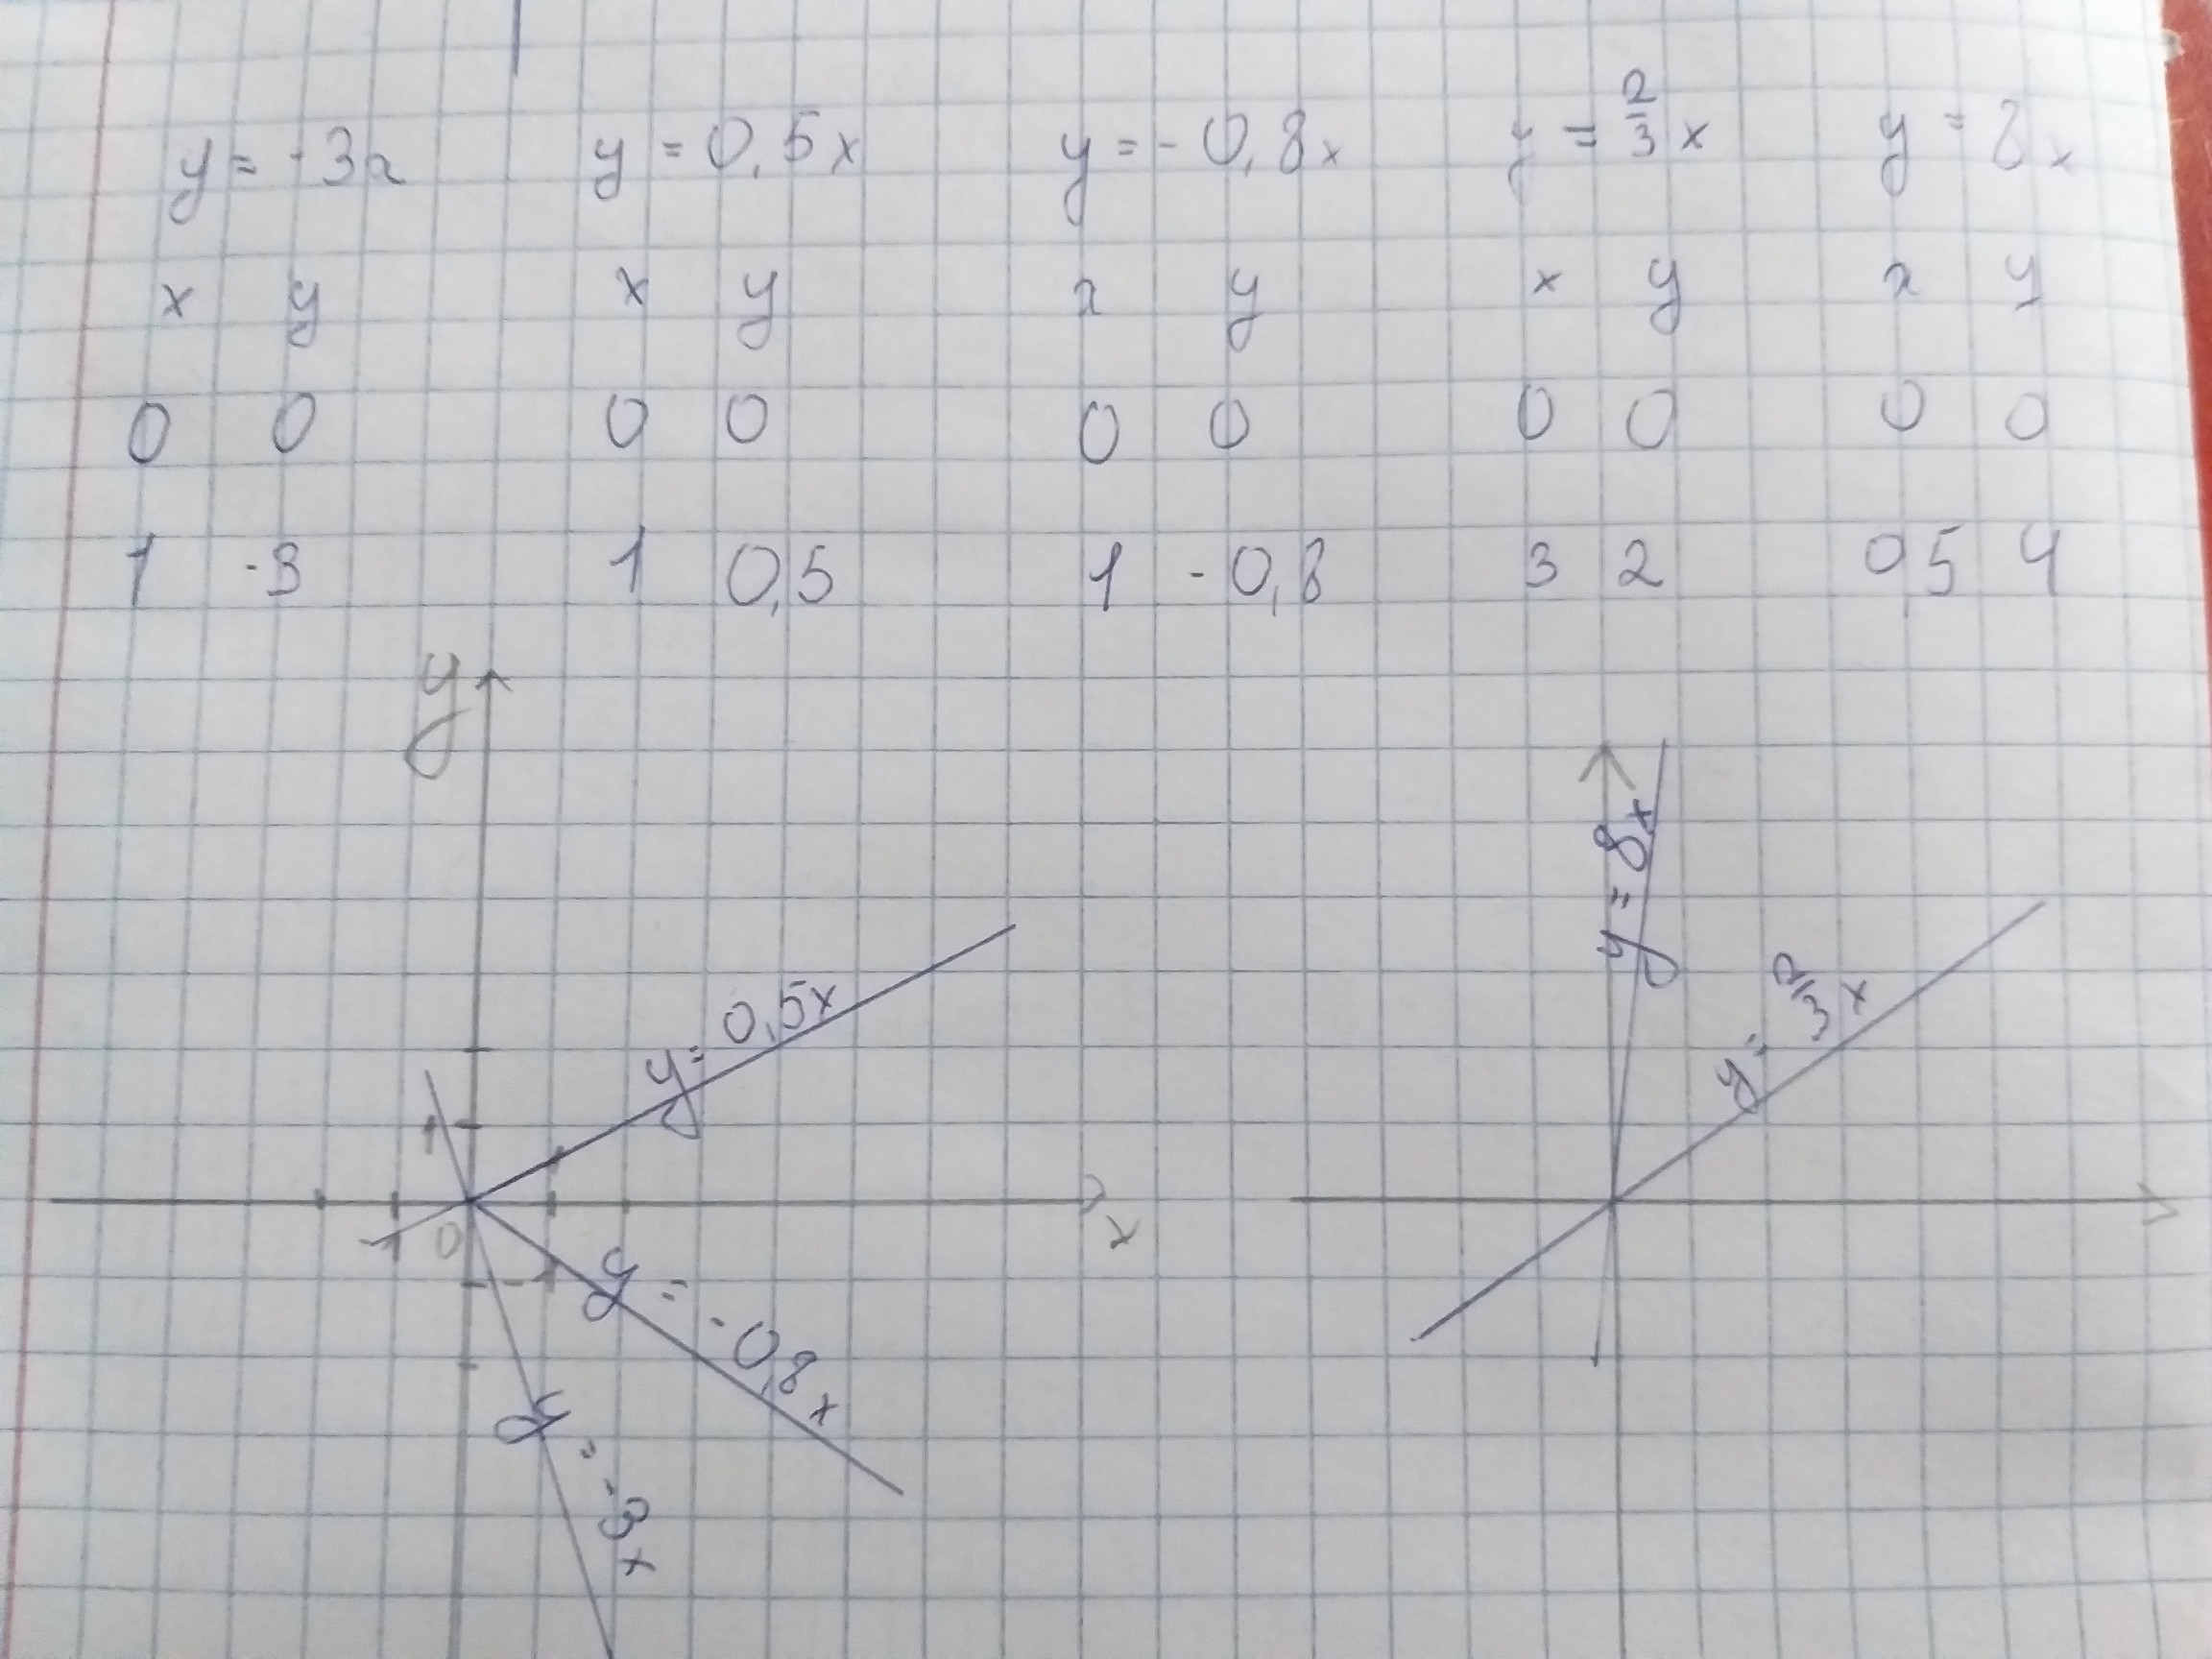 y = -3x y = 0,5x y = -0,8x y = 2/3 x y = 8x
x y x y x y x y x y
0 0 0 0 0 0 0 0 0 0
1 -3 1 0,5 1 -0,8 3 2 0,5 4
y
y = 8x
y = 0,5x
y = 2/3 x
1
1 0
x
y = -0,8x
y = -3x